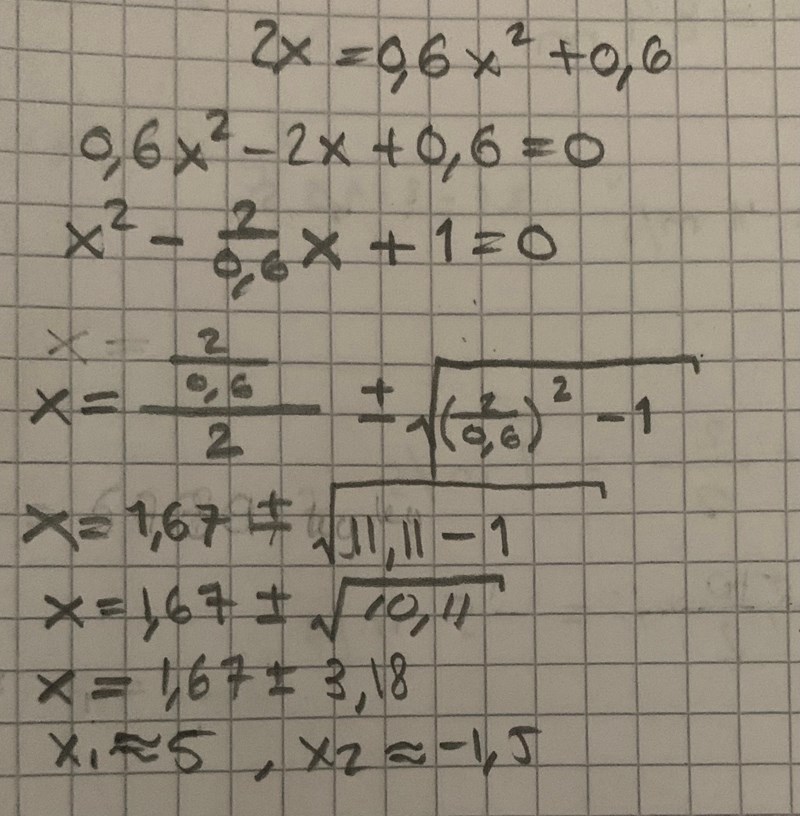 2x = 0,6x² + 0,6
0,6x² - 2x + 0,6 = 0
x² - 2/0,6 x + 1 = 0
x =
x = (2/0,6)/2 ± √((2/0,6)² - 1)
x = 1,67 ± √(11,11 - 1)
x = 1,67 ± √(10,11)
x = 1,67 ± 3,18
x₁ ≈ 5 , x₂ ≈ -1,5